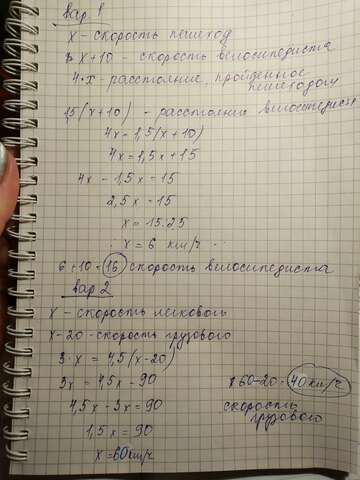 Вар 1
х - скорость пешеход
х+10 - скорость велосипедиста
4·х - расстояние, пройденное
пешеходом
1,5(х+10) - расстояние велосипедист
4х = 1,5(х+10)
4х = 1,5х + 15
4х - 1,5х = 15
2,5х = 15
х = 15:2,5
х = 6 км/ч
6+10 = 16 скорость велосипедиста
Вар 2
х - скорость легковой
х-20 - скорость грузового
3·х = 4,5(х-20)
3х = 4,5х - 90
4,5х - 3х = 90
1,5х = 90
х = 60км/ч
60-20 = 40 км/ч
скорость
грузового